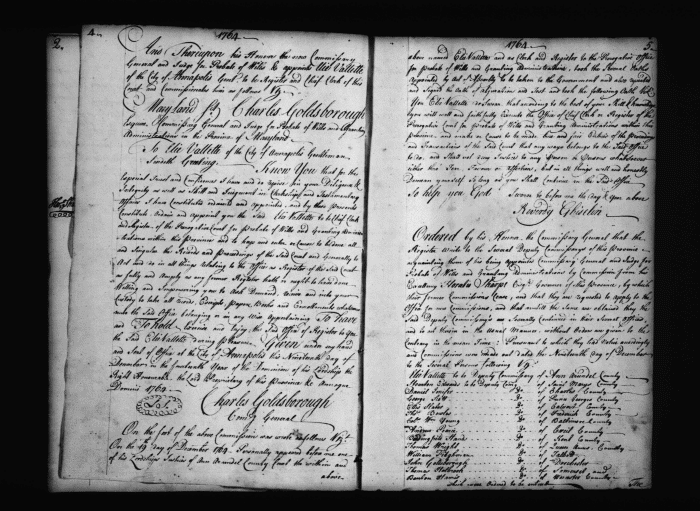 2.
4.
1764
And Thereupon his Honour the now Commissary
General and Judge for Probate of Wills &c appointed Elie Vallette
of the City of Annapolis Gent to be Register and Chief Clerk of this
Court and commissionates him as follows Vizt
Maryland Ss Charles Goldsborough
Esquire Commissary General and Judge for Probate of Wills and Granting
Administrations in the Province of Maryland
To Elie Vallette of the City of Annapolis Gentleman
Sendeth Greeting. Know You that for the
Especial Trust and Confidence I have and do repose in your Diligence &
Integrity as well as Skill and Judgment in Clerkships and Testamentary
Affairs I have Constituted ordained and appointed, and by these presents
Constitute Ordain and Appoint you the said Elie Vallette to be Chief Clerk
and Register of the Prerogative Court for probate of Wills and Granting Administrations
within this Province and to keep and make or cause to be made all
and Singular the Records and Proceedings of the said Court and Generally to
Act and do in all things relating to the Office as Register of the said Court
as fully and Amply as any former Register hath or ought to have done
Willing and Impowering you to Ask Demand, receive and take into your
Custody to take all Books Papers and Escrutments whatsoever
unto the said Office belonging or in any wise Appertaining To have
and To hold Exercise and Enjoy the said Office of Register to You
the said Elie Vallette during Pleasure. Given under my hand
and Seal of Office at the City of Annapolis this Nineteenth Day of
December in the fourteenth Year of the Dominion of his Lordship the
Right Honourable the Lord Proprietary of this Province &c Annoque
Domini 1764
Charles Goldsborough
Com'ry General
On the foot of the above Commission was wrote as follows Vizt
On the 19th day of December 1764. Personally appeared before me one
of his Lordships Justices of Ann Arundel County Court the within and
above
1764
5.
above named Elie Vallette as Clerk and Register to the Prerogative Office
for probate of Wills and Granting Administrations, took the several Oaths
appointed by Act of Assembly to be taken to the Government and also repeated
and Signed the Oath of Abjuration and Test and took the following Oath Vizt
You Elie Vallette do swear that according to the best of your Skill & knowledge
you will well and faithfully Execute the Office of Chief Clerk or Register of the
Prerogative Court for probate of Wills and Granting Administrations within this
Province and make or cause to be made true and fair Entries of the Proceedings
and Transactions of the said Court that any ways belongs to the said Office
to do, and shall not deny Justice to any Person or Persons whatsoever
either thro Fear Favour or Affection, but in all things well and honestly
Demean yourself so long as you shall Continue in the said Office
So help you God. Sworn to before me the day & Year above
Reverdy Ghiselin
Ordered by his Honour the Commissary General that the
Register write to the several Deputy Commissarys of this Province
acquainting them of his being appointed Commissary General and Judge for
Probate of Wills and Granting Administrations by Commission from his
Excellency Horatio Sharpe Esqr Governor of this province, by which
their former Commissions Cease, and that they are requested to apply to the
Office for new Commissions, and that untill the same are obtained they the
said Deputy Commissarys are severally Continued in their several Offices
and to act therein in the Usual Manner, without Orders are given to the
Contrary in the mean Time: Pursuant to which they Acted accordingly
and Commissions were made out dated the Nineteenth day of December
to the several Persons following Vizt
Elie Vallette to be Deputy Commissary of Ann Arundel County
to be Deputy Comry of Saint Marys County
Do of Charles County
George Do of Prince Georges County
Do of Calvert County
Do of Frederick County
Do of Baltimore County
Do of Cecil County
Do of Kent County
Thomas Wright Do of Queen Anns County
William Do of Talbott
John Goldsborough Do of Dorchester
Thomas Do of Somerset and
Benton Harris Do of Worcester County
which were Ordered to be entered
The